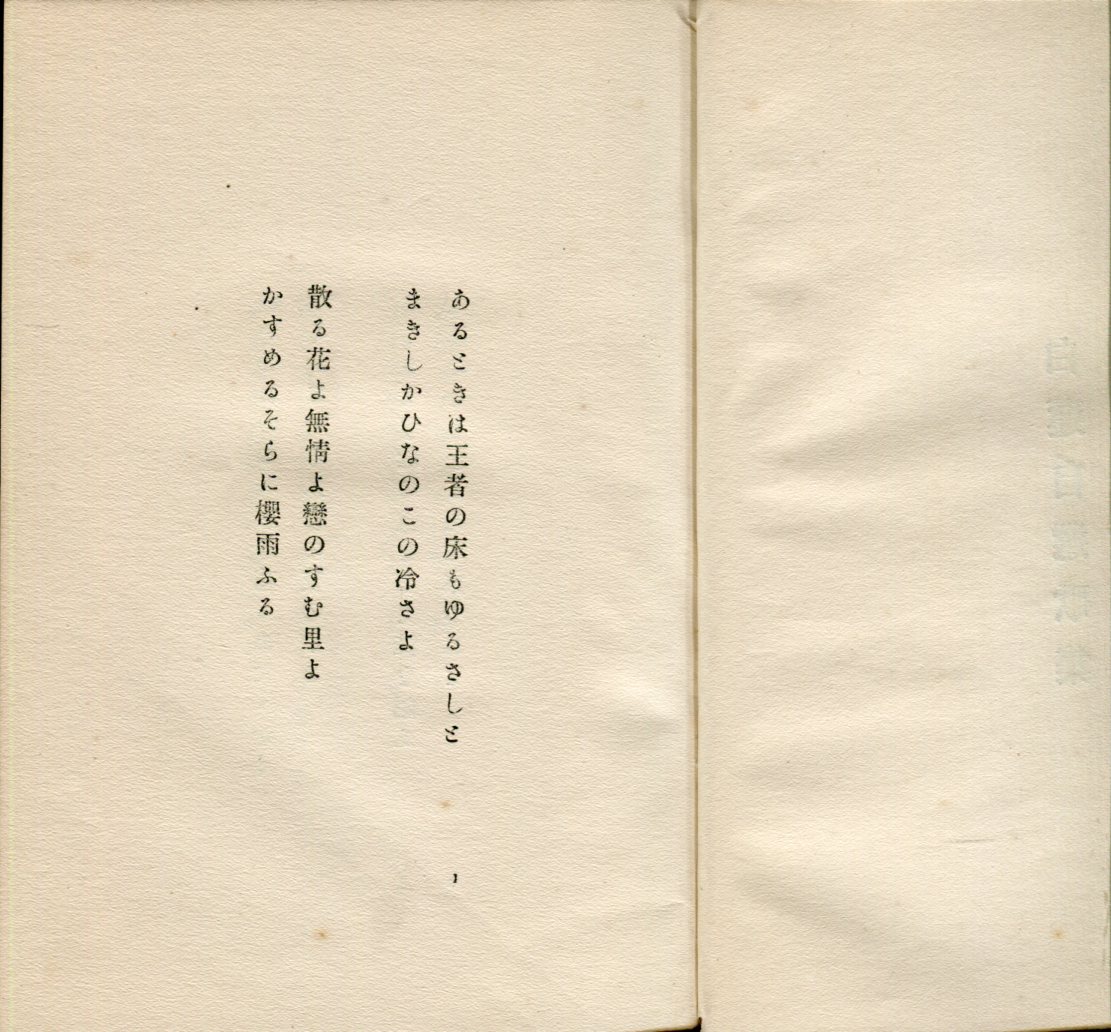 あるときは王者の床もゆるさしと
まきしかひなのこの冷さよ
散る花よ無情よ戀のすむ里よ
かすめるそらに櫻雨ふる
1